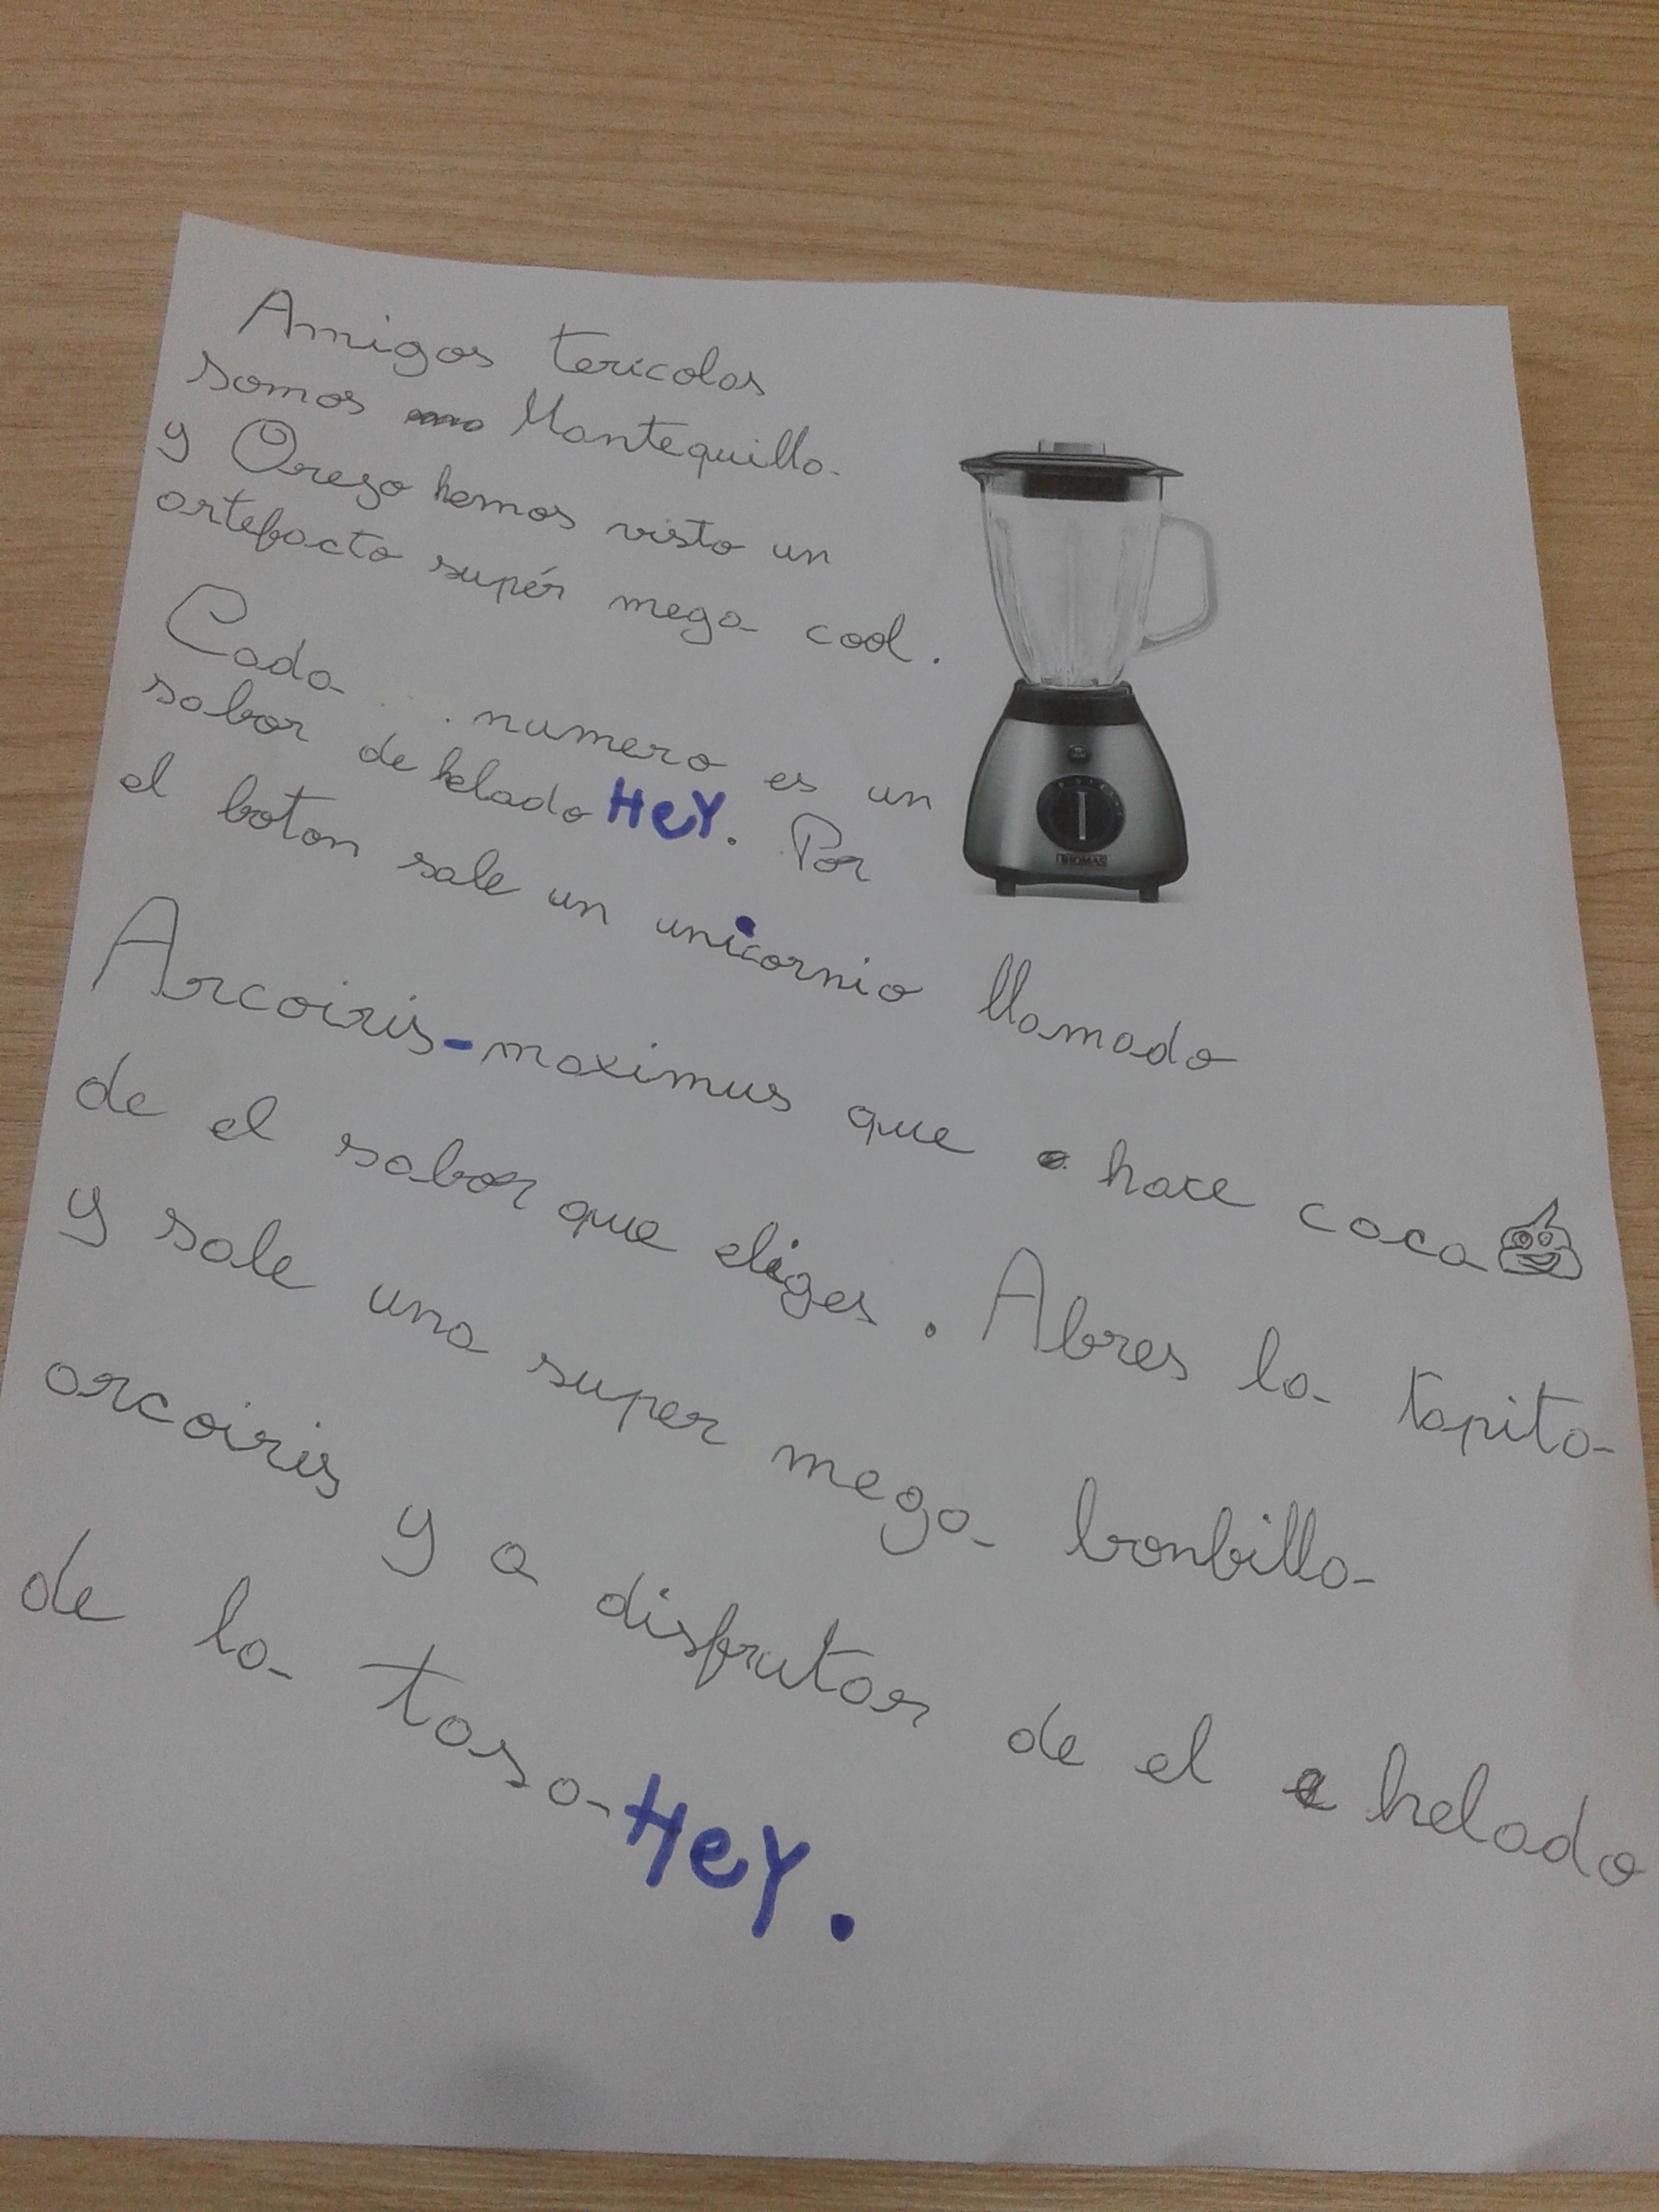 Amigos terícolas
somos Mantequilla
y Orezo hemos visto un
artefacto supér mega cool.
Cada numero es un
sabor de helado HeY. Por
el boton sale un unicornio llamado
Arcoiris-maximus que hace caca
de el sabor que eliges. Abres la tapita
y sale una super mega bonbilla
arcoiris y a disfrutar de el helado
de la tasa HeY.
THOMAS